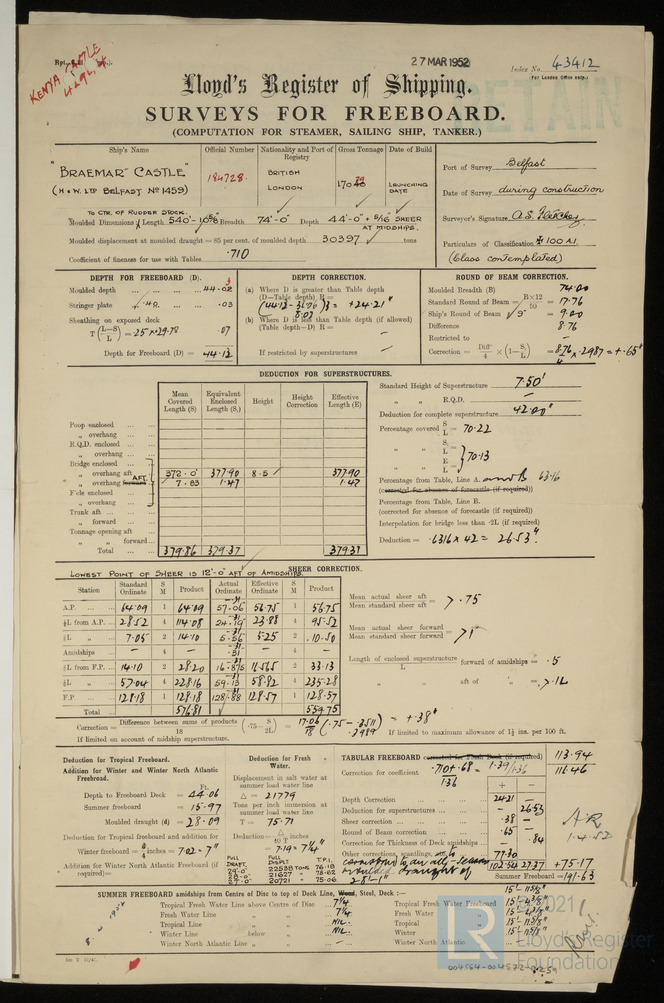 27 MAR 1952
Index No. 43412
(For London Office only.)
KENYA CASTLE
Lloyd's Register of Shipping.
SURVEYS FOR FREEBOARD.
(COMPUTATION FOR STEAMER, SAILING SHIP, TANKER.)
Ship's Name
Official Number
Nationality and Port of Registry
Gross Tonnage
Date of Build
"BRAEMAR CASTLE"
(H & W. LTD BELFAST No 1459)
184728.
BRITISH
LONDON
LAUNCHING DATE
Port of Survey Belfast
Date of Survey during construction
Surveyor's Signature
Particulars of Classification ✠ 100 A1.
(Class contemplated)
TO CTR. OF RUDDER STOCK.
Moulded Dimensions: Length 540'- Breadth 74'-0" Depth 44'-0" + 5/16 SHEER AT MIDSHIPS.
Moulded displacement at moulded draught = 85 per cent. of moulded depth 30397 tons
Coefficient of fineness for use with Tables .710
DEPTH FOR FREEBOARD (D).
Moulded depth ... 44.03
Stringer plate ... .03
Sheathing on exposed deck
T (L-S/L) = .07
Depth for Freeboard (D) = 44.12
DEPTH CORRECTION.
(a) Where D is greater than Table depth
(D—Table depth) R =
= +24.21"
(b) Where D is less than Table depth (if allowed)
(Table depth—D) R =
If restricted by superstructures
ROUND OF BEAM CORRECTION.
Moulded Breadth (B) 74.00
Standard Round of Beam = B×12/50 = 17.76
Ship's Round of Beam = 9" = 9.00
Difference 8.76
Restricted to —
Correction = Diff/4 × (1−S/L) = 8.76/4 × .2987 = +.65"
DEDUCTION FOR SUPERSTRUCTURES.
Mean Covered Length (S)
Equivalent Enclosed Length (S₁)
Height
Height Correction
Effective Length (E)
Poop enclosed
" overhang
R.Q.D. enclosed
" overhang
Bridge enclosed
" overhang aft 372.0' 377.90 8.5 377.90
" overhang forward AFT. 7.83 1.47 1.47
F'cle enclosed
" overhang
Trunk aft
" forward
Tonnage opening aft
" " forward
Total 379.86 379.37 379.37
Standard Height of Superstructure 7.50'
" " R.Q.D. —
Deduction for complete superstructure 42.00"
Percentage covered S/L = 70.22
" " S₁/L
" " E/L = 70.13
Percentage from Table, Line A. and B 63.16
(corrected for absence of forecastle (if required))
Percentage from Table, Line B.
(corrected for absence of forecastle (if required))
Interpolation for bridge less than .2L (if required)
Deduction = .6316 × 42 = 26.53"
SHEER CORRECTION.
LOWEST POINT OF SHEER IS 12'-0" AFT OF AMIDSHIPS.
Station
Standard Ordinate
S M
Product
Actual Ordinate
Effective Ordinate
S M
Product
A.P. 64.09 1 64.09 57.06 56.75 1 56.75
⅙L from A.P. 28.52 4 114.08 24.19 23.88 4 95.52
⅓L " 7.05 2 14.10 5.56 5.25 2 10.50
Amidships — 4 — .31 — 4 —
⅓L from F.P. 14.10 2 28.20 16.875 16.565 2 33.13
⅙L " 57.04 4 228.16 59.13 58.82 4 235.28
F.P. 128.18 1 128.18 128.88 128.57 1 128.57
Total 576.81 559.75
Mean actual sheer aft
Mean standard sheer aft = > .75
Mean actual sheer forward
Mean standard sheer forward = > 1
Length of enclosed superstructure forward of amidships = .5
L
" aft of " = > .1L
Correction = Difference between sums of products/18 (.75—S/2L) = 17.06/18 (.75 − .3511) .3989 = +.38"
If limited on account of midship superstructure.
If limited to maximum allowance of 1½ ins. per 100 ft.
Deduction for Tropical Freeboard.
Addition for Winter and Winter North Atlantic Freeboard.
Ft.
Depth to Freeboard Deck = 44.06
Summer freeboard = 15.97
Moulded draught (d) = 28.09
Deduction for Tropical freeboard and addition for
Winter freeboard = d/4 inches = 7.02 = 7"
Addition for Winter North Atlantic Freeboard (if required) =
Deduction for Fresh Water.
Displacement in salt water at summer load water line
Δ = 21779
Tons per inch immersion at summer load water line
T = 75.71
Deduction = Δ/40 T inches
= 7.19 = 7¼"
FULL DRAFT. FULL DISPLT T.P.I.
29'-0" 22538 TONS 76.18
21627 75.62
27'-0" 20721 75.06
TABULAR FREEBOARD corrected for Flush Deck (if required) 113.94
Correction for coefficient .710+.68/1.36 = 1.39/1.36 116.46
+ −
Depth Correction 24.21 —
Deduction for superstructures — 26.53
Sheer correction .38 —
Round of Beam correction .65 —
Correction for Thickness of Deck amidships — .84
Other corrections, scantlings, etc 77.30
moulded draught of 28'-1"
102.54 27.37 +75.17
Summer Freeboard = 191.63
AR
1.4.52
SUMMER FREEBOARD amidships from Centre of Disc to top of Deck Line, Wood, Steel, Deck :—
Tropical Fresh Water Line above Centre of Disc 7¼
Fresh Water Line " " 7¼
Tropical Line " " NIL.
Winter Line below " NIL.
Winter North Atlantic Line " " —
15'-11⅝"
Tropical Fresh Water Freeboard 15'-4⅜"
Fresh Water " 15'-4⅜"
Tropical " 15'-11⅝"
Winter " 15'-11⅝"
Winter North Atlantic " —
LR
2021
Lloyd's Register
Foundation
004564-004572-0259